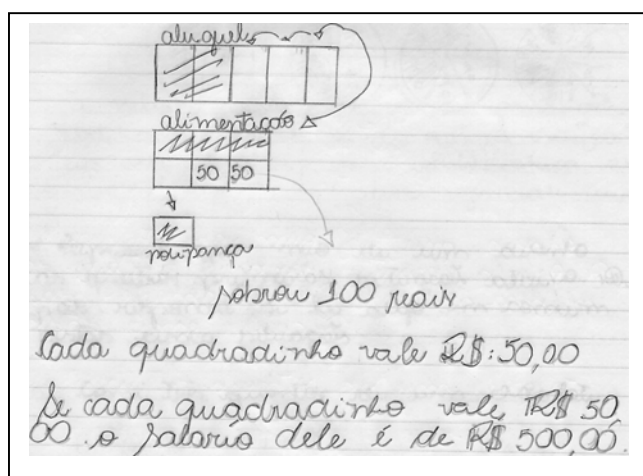 aluguel
alimentação
50 50
poupança
sobrou 100 reais
Cada quadradinho vale R$:50,00
Se cada quadradinho vale R$ 50
00 o salário dele é de R$ 500,00.